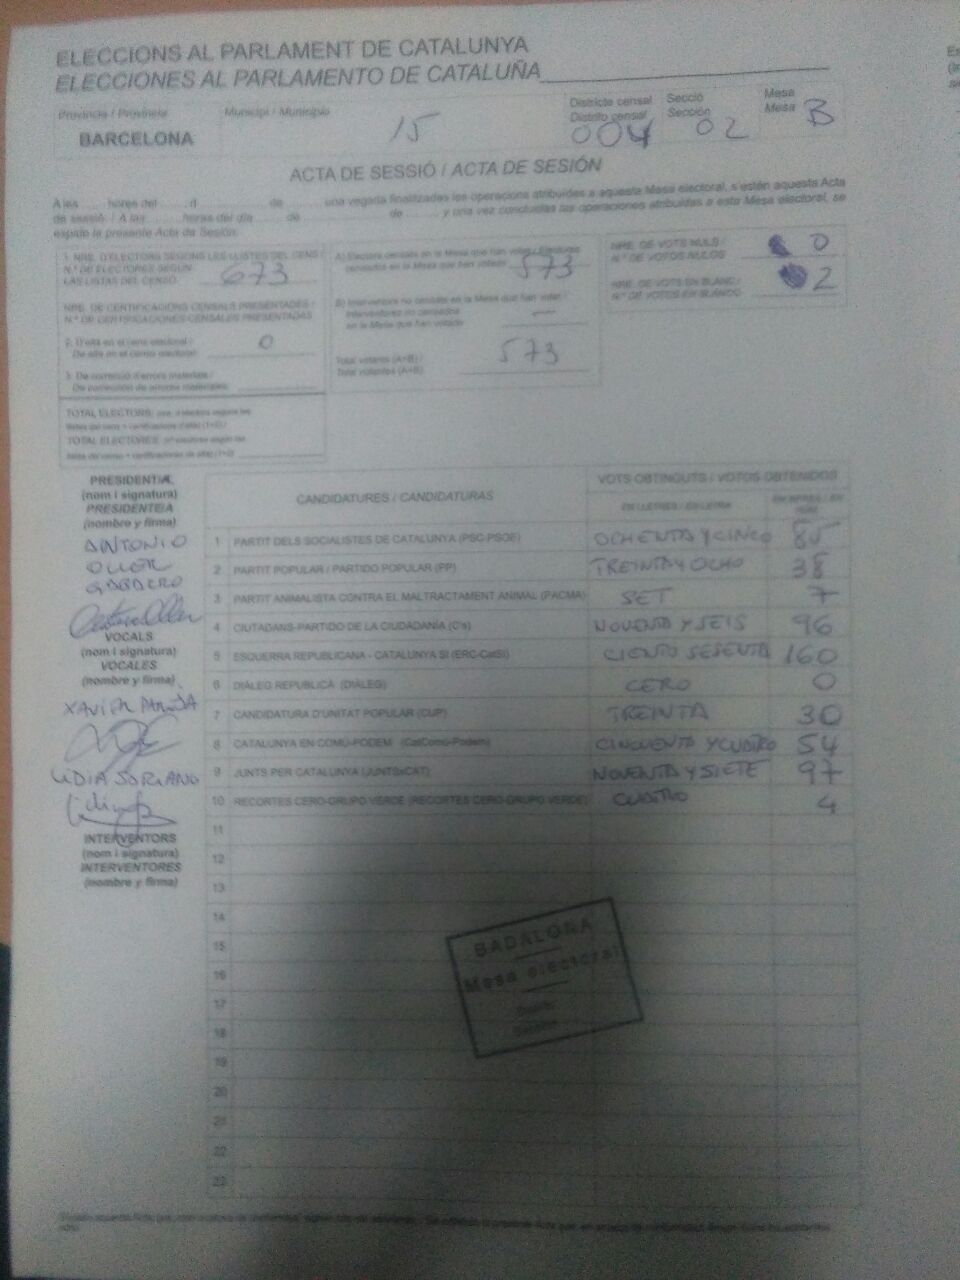 ELECCIONS AL PARLAMENT DE CATALUNYA
ELECCIONES AL PARLAMENTO DE CATALUÑA
Provincia / Provincia
BARCELONA
Municipi / Municipio
15
Districte censal
Distrito censal
004
Secció
Sección
02
Mesa
Mesa
B
ACTA DE SESSIÓ / ACTA DE SESIÓN
A les ...... hores del ...... d ...... de ...... una vegada finalitzades les operacions atribuïdes a aquesta Mesa electoral, s'estén aquesta Acta
de sessió. / A las ...... horas del día ...... de ...... de ...... y una vez concluidas las operaciones atribuidas a esta Mesa electoral, se
expide la presente Acta de Sesión.
1. NRE. D'ELECTORS SEGONS LES LLISTES DEL CENS /
N.º DE ELECTORES SEGÚN
LAS LISTAS DEL CENSO
673
NRE. DE CERTIFICACIONS CENSALS PRESENTADES /
N.º DE CERTIFICACIONES CENSALES PRESENTADAS
2. D'alta en el cens electoral /
De alta en el censo electoral:
0
3. De correcció d'errors materials /
De corrección de errores materiales:
TOTAL ELECTORS:
TOTAL ELECTORES:
A) Electors censats en la Mesa que han votat / Electores
censados en la Mesa que han votado
573
B) Interventors no censats en la Mesa que han votat /
Interventores no censados
en la Mesa que han votado
—
Total votants (A+B) /
Total votantes (A+B)
573
NRE. DE VOTS NULS /
N.º DE VOTOS NULOS
0
NRE. DE VOTS EN BLANC /
N.º DE VOTOS EN BLANCO
2
PRESIDENT/A
(nom i signatura)
PRESIDENTE/A
(nombre y firma)
ANTONIO
OLLER
VOCALS
(nom i signatura)
VOCALES
(nombre y firma)
XAVIER
LIDIA SORIANO
INTERVENTORS
(nom i signatura)
INTERVENTORES
(nombre y firma)
CANDIDATURES / CANDIDATURAS
VOTS OBTINGUTS / VOTOS OBTENIDOS
EN LLETRES / EN LETRA
1 PARTIT DELS SOCIALISTES DE CATALUNYA (PSC-PSOE) OCHENTA Y CINCO 85
2 PARTIT POPULAR / PARTIDO POPULAR (PP) TREINTA Y OCHO 38
3 PARTIT ANIMALISTA CONTRA EL MALTRACTAMENT ANIMAL (PACMA) SET 7
4 CIUTADANS-PARTIDO DE LA CIUDADANÍA (C's) NOVENTA Y SEIS 96
5 ESQUERRA REPUBLICANA - CATALUNYA SÍ (ERC-CatSí) CIENTO SESENTA 160
6 DIÀLEG REPUBLICÀ (DIÀLEG) CERO 0
7 CANDIDATURA D'UNITAT POPULAR (CUP) TREINTA 30
8 CATALUNYA EN COMÚ-PODEM (CatComú-Podem) CINCUENTA Y CUATRO 54
9 JUNTS PER CATALUNYA (JUNTSxCAT) NOVENTA Y SIETE 97
10 RECORTES CERO-GRUPO VERDE (RECORTES CERO-GRUPO VERDE) CUATRO 4
11
12
13
14
15
16
17
18
19
20
21
22
23
BADALONA
Mesa electoral